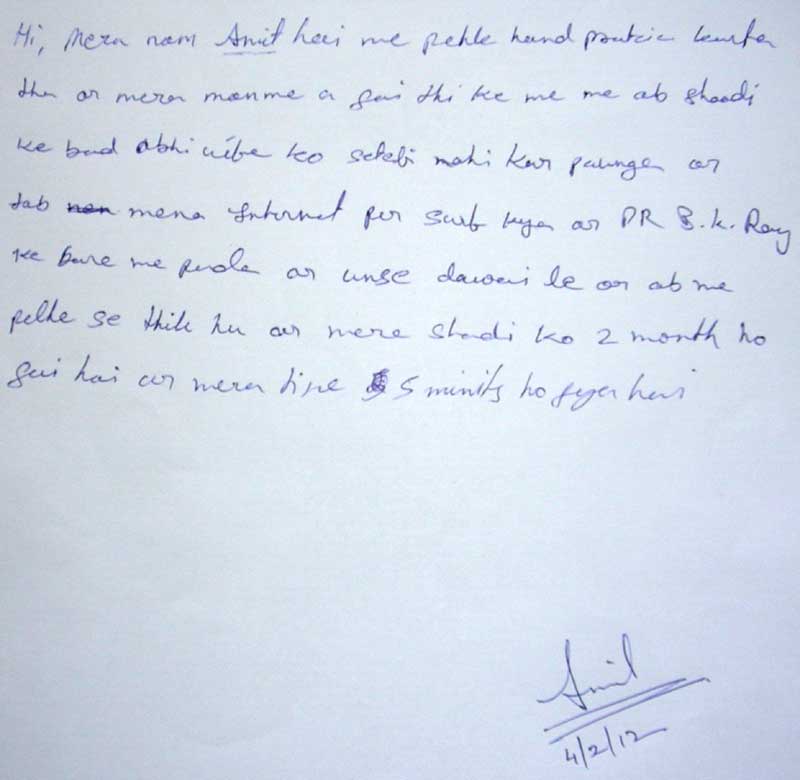 Hi, Mera nam Amit hai me pehle hand pratcic karta
tha ar mera manme a gai thi ke me me ab shaadi
ke bad abhi wibe ko setebi nahi kar paunga ar
tab mena Internet per surb kya ar DR B.K. Roy
ke bare me pada ar unse dawai le ar ab me
pelhe se thik hu ar mere shadi ko 2 month ho
gai hai ar mera time 5 minits ho gya hai
Amit
4/2/12